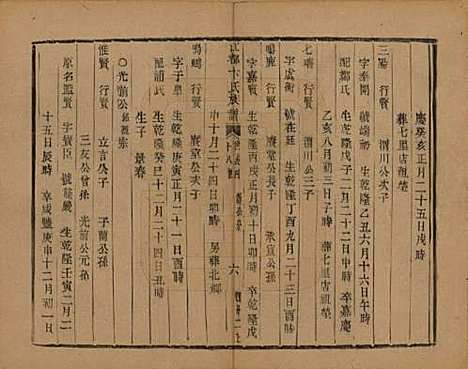 慶癸亥正月二十五日戌時
葬七里店祖塋
三陽 行賢 渭川公次子
字奉開 號端初 生乾隆乙丑六月十六日午時
配鄒氏 生乾隆戊子二月二十二日申時 卒嘉慶
乙亥八月初三日子時 葬七里店祖塋
七疇 行賢 渭川公三子
字虞衡 號在廷 生乾隆丁酉九月二十三日酉時
鳴鹿 行賢 賡堂公長子 承宣公孫
字嘉賓 生乾隆丙戌正月初十日卯時 卒乾隆戊
江都卞氏族譜
六
申十月二十四日卯時 另葬北鄉
鳴鶴 行賢 賡堂公次子
字子皋 生乾隆庚寅正月二十一日酉時
配浦氏 生乾隆癸巳十二月二十四日丑時
生子 景春
○光前公
惟賢 行賢 立言公子 子蘭公孫
三友公曾孫 光前公元孫
原名盤賢 字賚臣 號 生乾隆壬寅二月二
十五日辰時 卒咸豐庚申十二月初一日